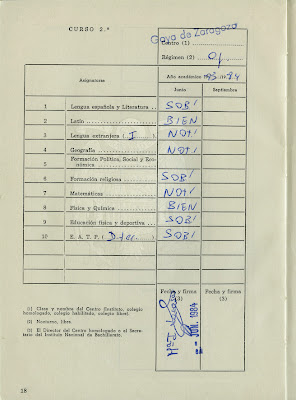 CURSO 2.º
Goya de Zaragoza
Centro (1)
Régimen (2) Of.
Año académico 1983-84
Asignaturas
Junio Septiembre
1 Lengua española y Literatura .. SOB/
2 Latín BIEN
3 Lengua extranjera ( I ) NOT/
4 Geografía NOT/
5 Formación Política, Social y Económica
6 Formación religiosa SOB/
7 Matemáticas NOT/
8 Física y Química BIEN
9 Educación física y deportiva SOB/
10 E. A. T. P. ( ) SOB/
Fecha y firma (3) Fecha y firma (3)
JUN. 1984
(1) Clase y nombre del Centro (Instituto, colegio homologado, colegio habilitado, colegio libre).
(2) Nocturno, libre.
(3) El Director del Centro homologado o el Secretario del Instituto Nacional de Bachillerato.
18